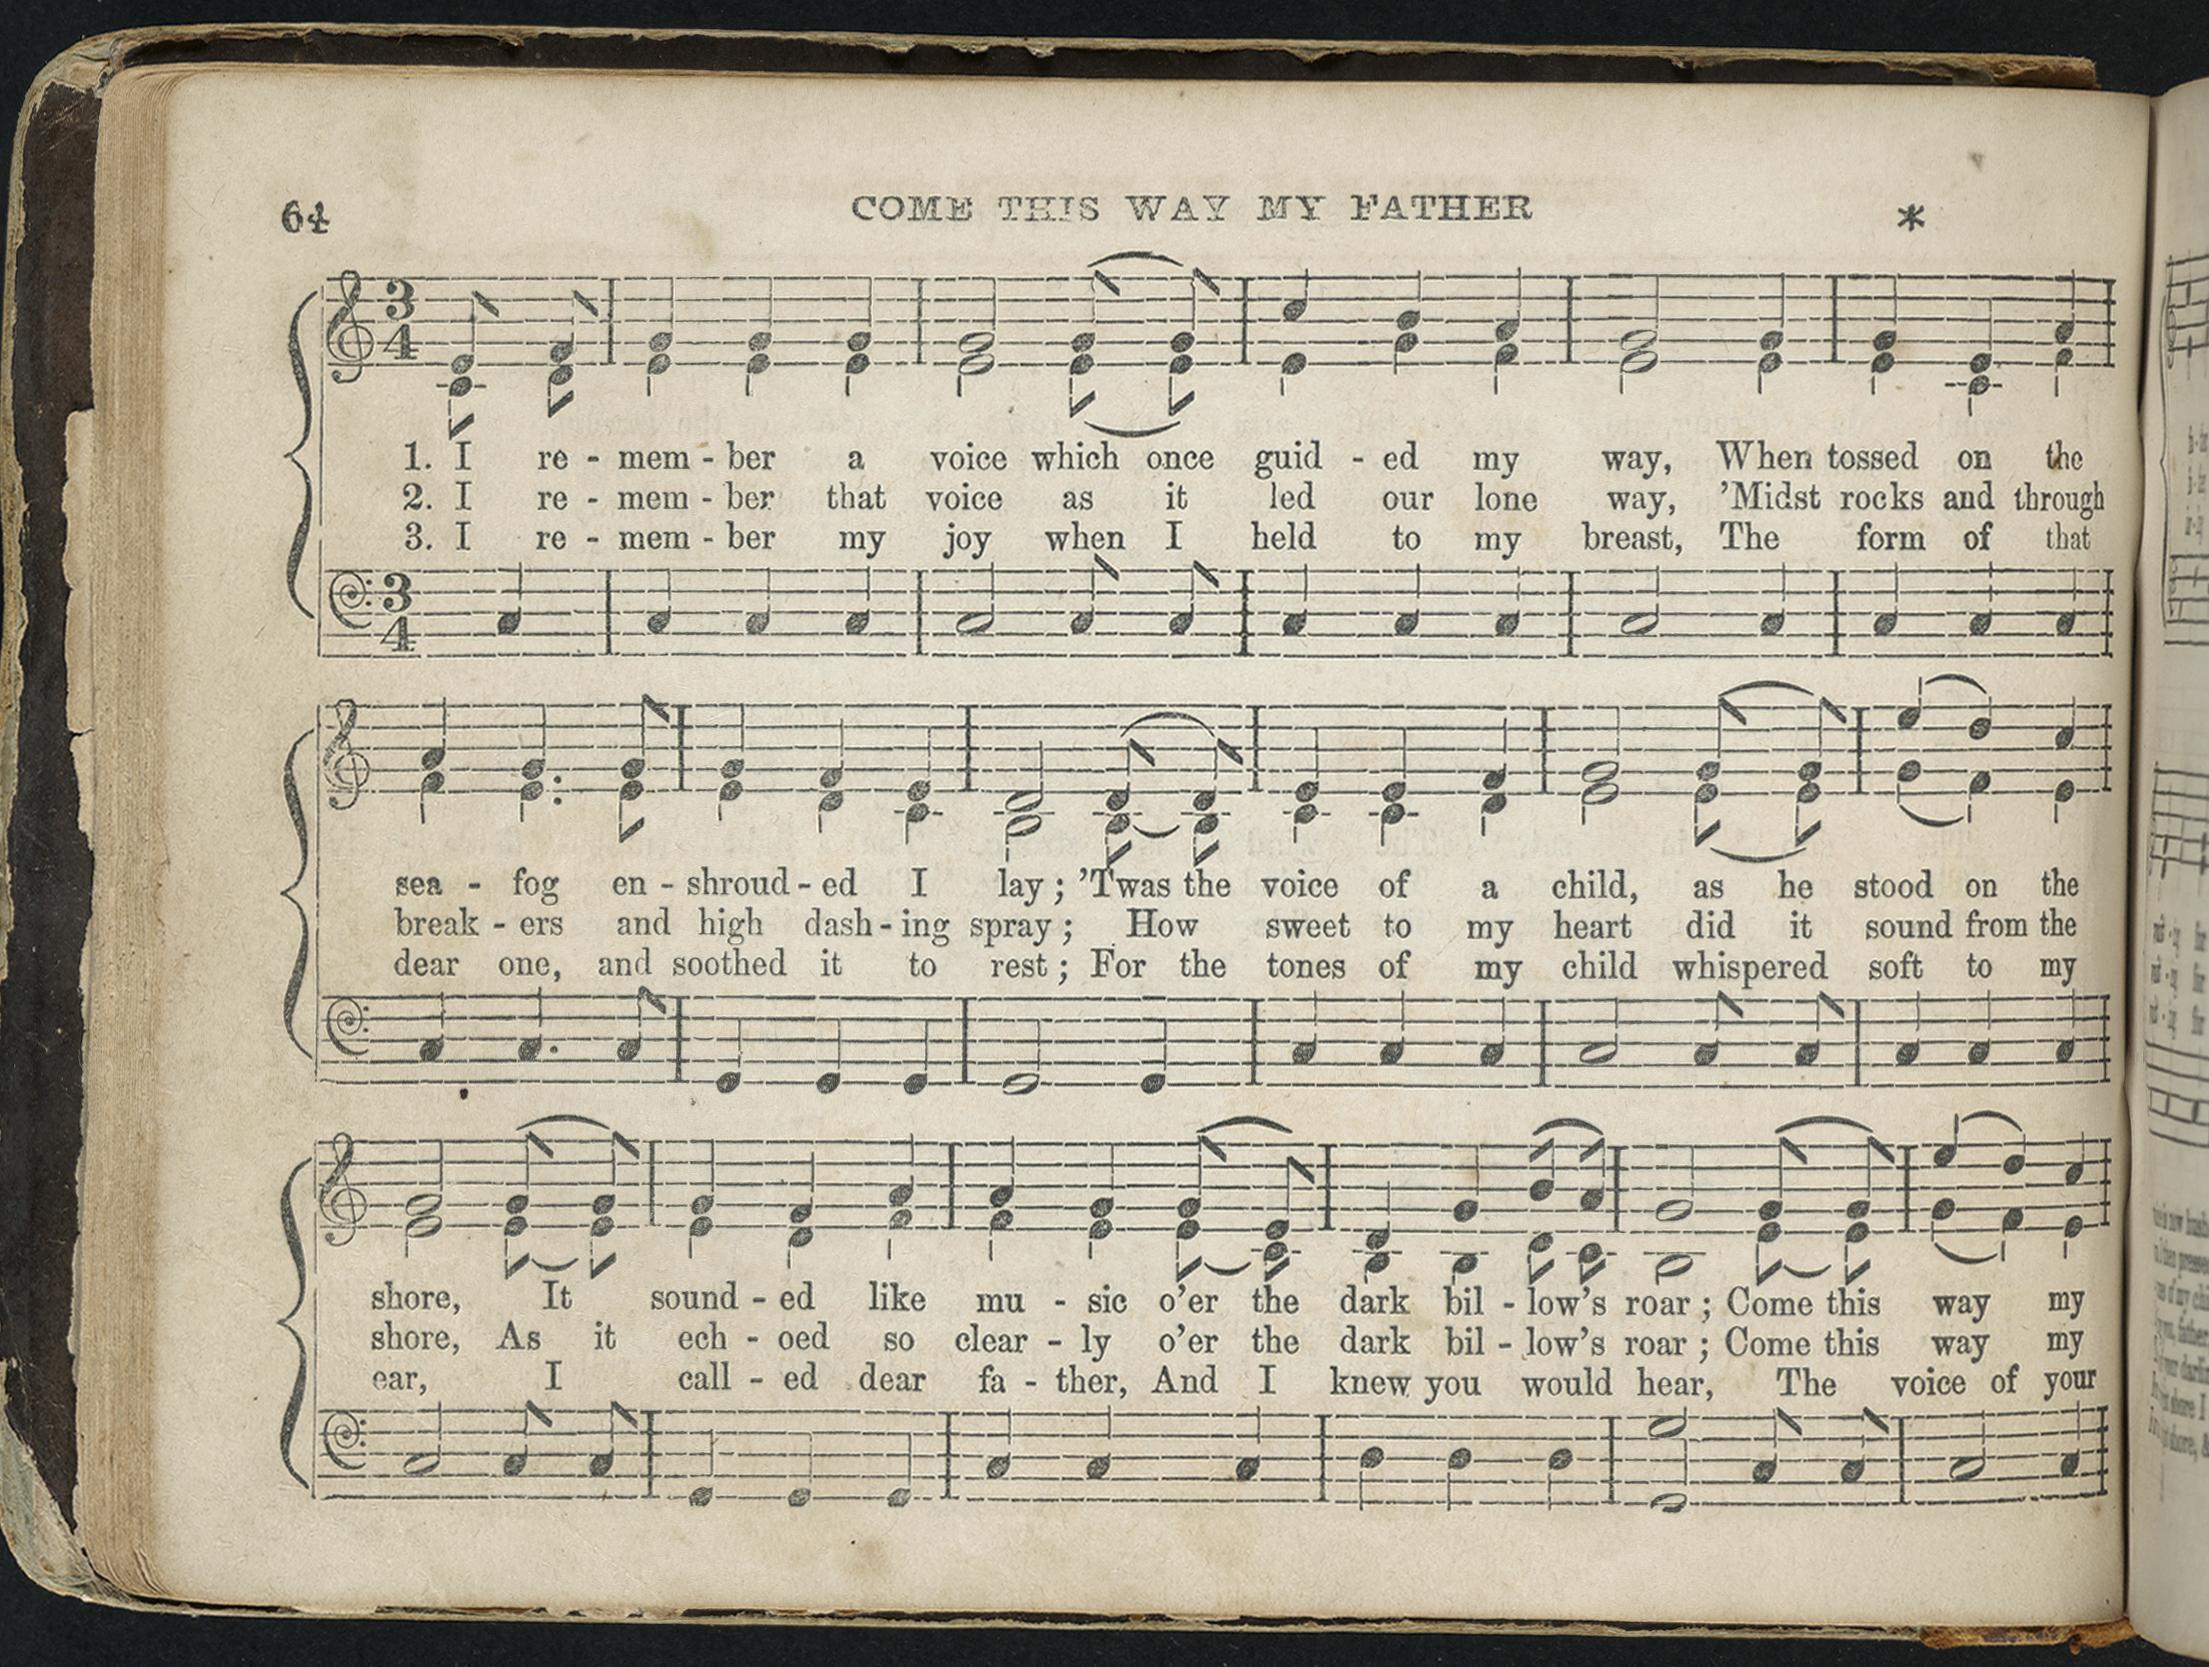 64 COME THIS WAY MY FATHER *
3
4
1. I re - mem - ber a voice which once guid - ed my way, When tossed on the
2. I re - mem - ber that voice as it led our lone way, ’Midst rocks and through
3. I re - mem - ber my joy when I held to my breast, The form of that
3
4
sea - fog en - shroud - ed I lay ; ’Twas the voice of a child, as he stood on the
break - ers and high dash - ing spray ; How sweet to my heart did it sound from the
dear one, and soothed it to rest ; For the tones of my child whispered soft to my
shore, It sound - ed like mu - sic o’er the dark bil - low’s roar ; Come this way my
shore, As it ech - oed so clear - ly o’er the dark bil - low’s roar ; Come this way my
ear, I call - ed dear fa - ther, And I knew you would hear, The voice of your